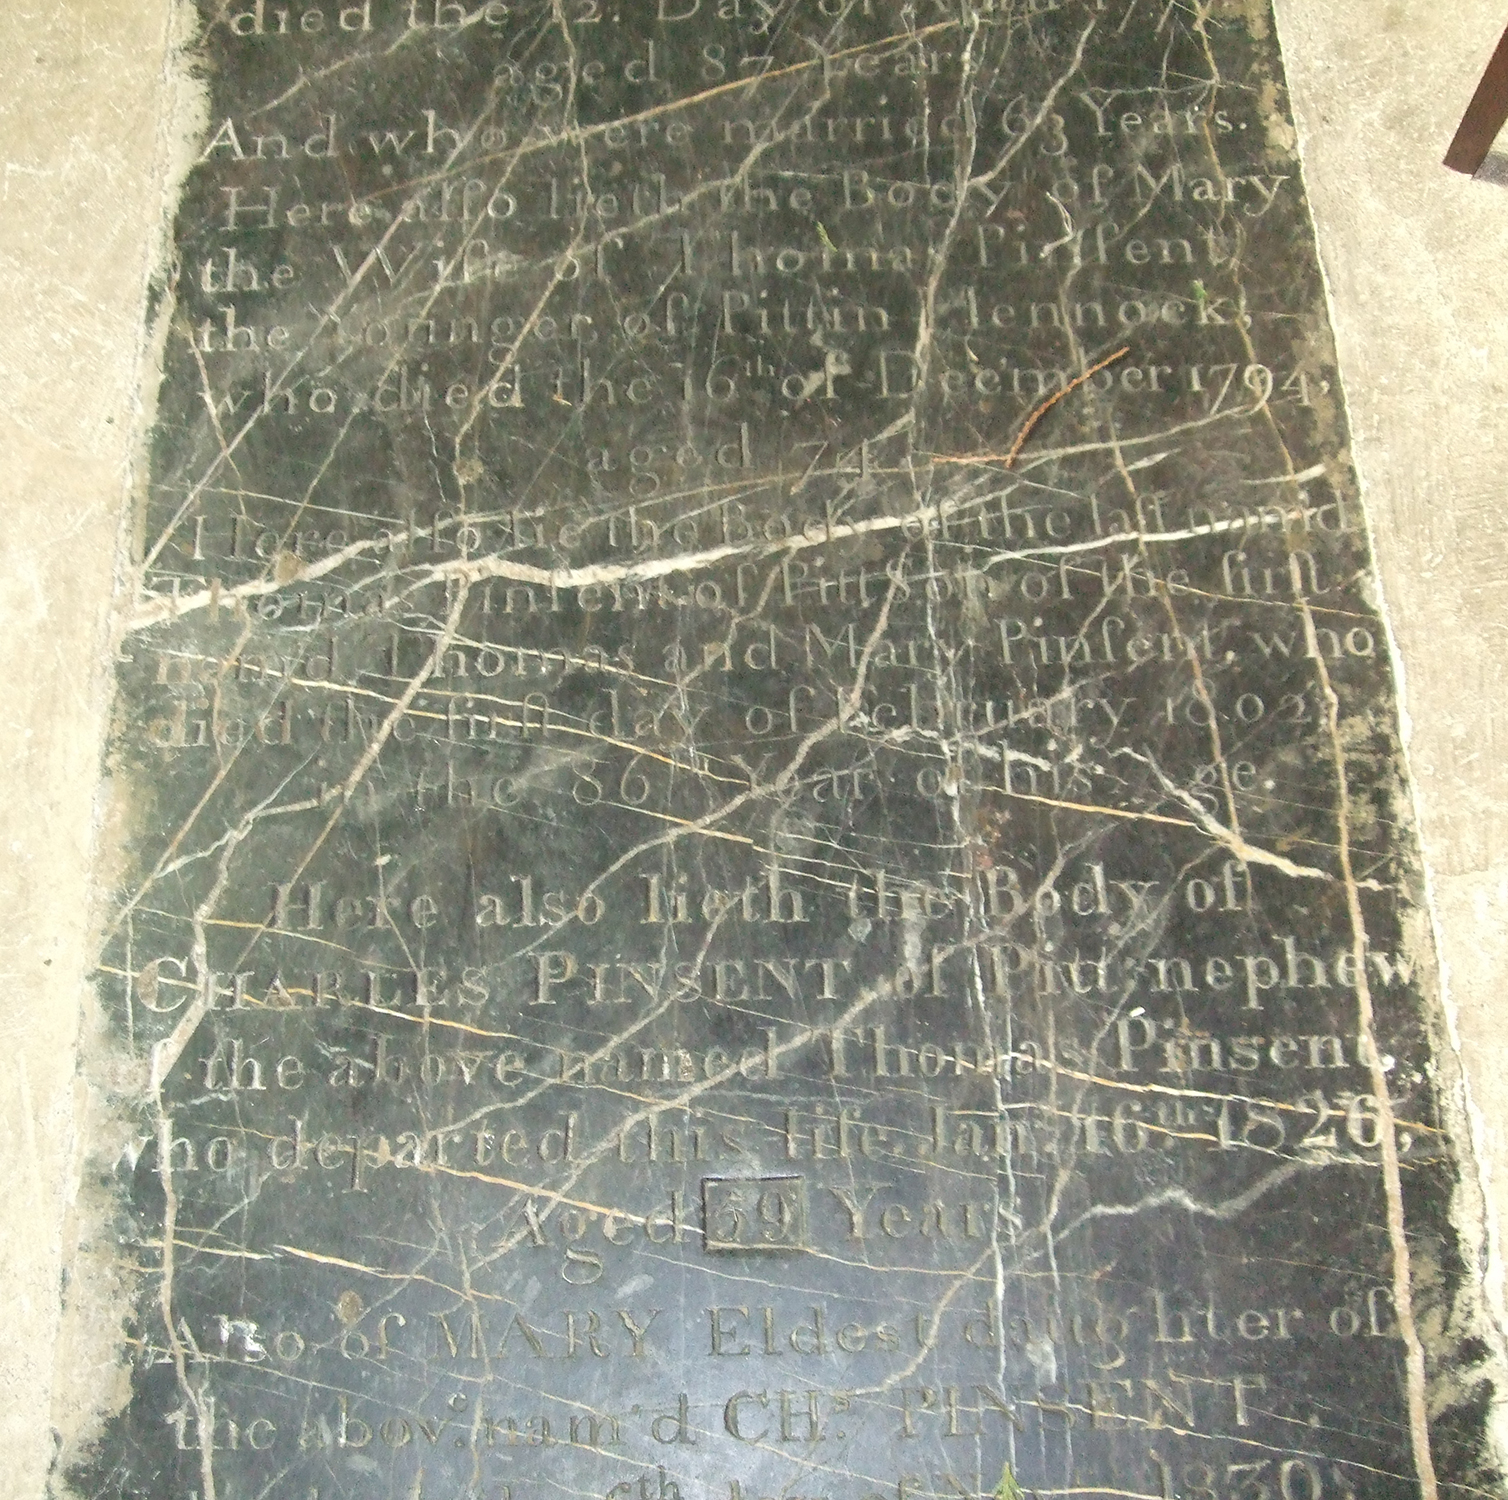 died the 12. Day of April 177
aged 87 Years.
And who were married 63 Years.
Here alſo lieth the Body of Mary
the Wife of Thomas Pinſent
the Younger of Pitt in Hennock,
who died the 16th of December 1794,
aged 74
Here alſo lie the Body of the laſt nam'd
Thomas Pinſent of Pitt Son of the firſt
nam'd Thomas and Mary Pinſent, who
died the firſt day of February 1802,
in the 86th Year of his Age.
Here also lieth the Body of
CHARLES PINSENT of Pitt nephew
the above named Thomas Pinsent,
who departed this life Jan: 16th 1826,
Aged 59 Years
Also of MARY Eldest daughter of
the abov: nam'd CHs. PINSENT
6th day of 1830